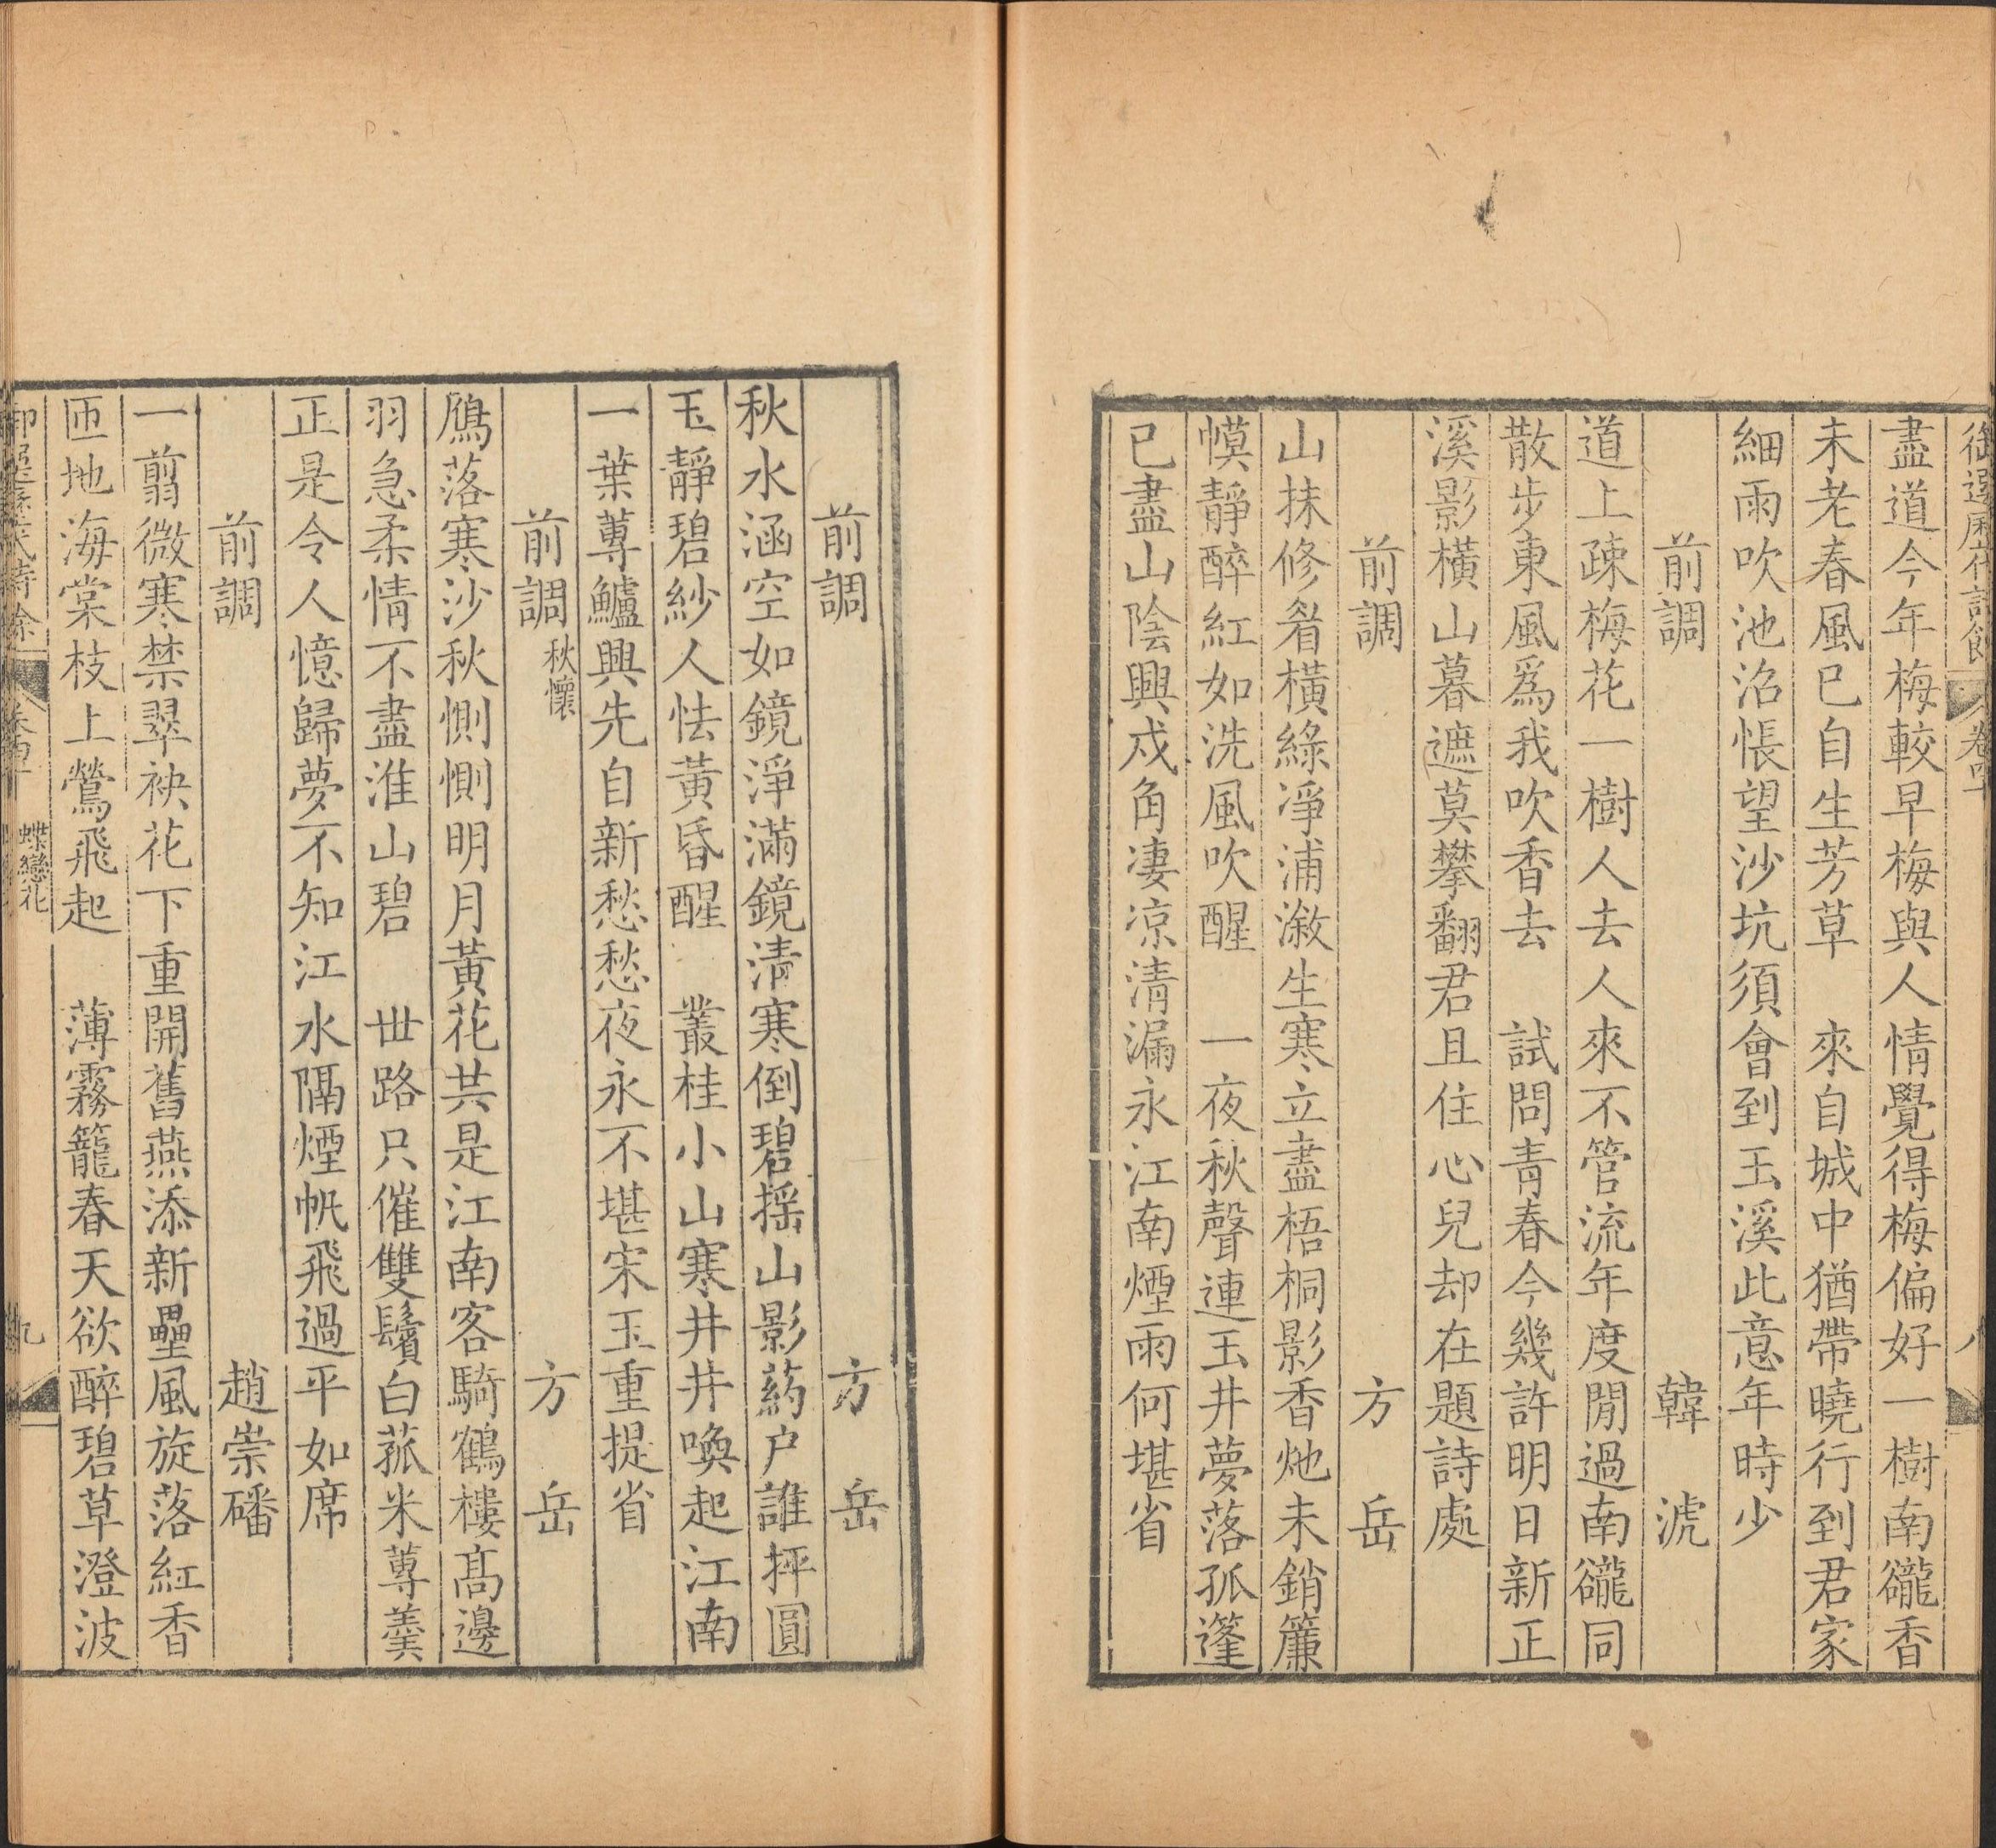 御選歷代詩餘 卷四十 八
盡道今年梅較早梅與人情覺得梅偏好一樹南䆫香
未老春風已自生芳草　來自城中猶帶曉行到君家
細雨吹池沼悵望沙坑須會到玉溪此意年時少
前調　韓淲
道上疎梅花一樹人去人來不管流年度閒過南䆫同
散步東風為我吹香去　試問青春今幾許明日新正
溪影橫山暮遮莫攀翻君且住心兒却在題詩處
前調　方岳
山抹修眉橫綠凈浦溆生寒立盡梧桐影香灺未銷簾
幙靜醉紅如洗風吹醒　一夜秋聲連玉井夢落孤篷
已盡山陰興戍角凄凉清漏永江南煙雨何堪省
前調　方岳
秋水涵空如鏡淨滿鏡清寒倒碧搖山影葯户誰抨圓
玉靜碧紗人怯黃昏醒　叢桂小山寒井井喚起江南
一葉蓴鱸興先自新愁愁夜永不堪宋玉重提省
前調秋懷　方岳
鴈落寒沙秋惻惻明月黃花共是江南客騎鶴樓高邊
羽急柔情不盡淮山碧　世路只催雙鬢白菰米蓴羹
正是令人憶歸夢不知江水隔煙帆飛過平如席
前調　趙崇磻
一翦微寒禁翠袂花下重開舊燕添新壘風旋落紅香
匝地海棠枝上鶯飛起　薄霧籠春天欲醉碧草澄波
御選歷代詩餘 卷四十 蝶戀花 九